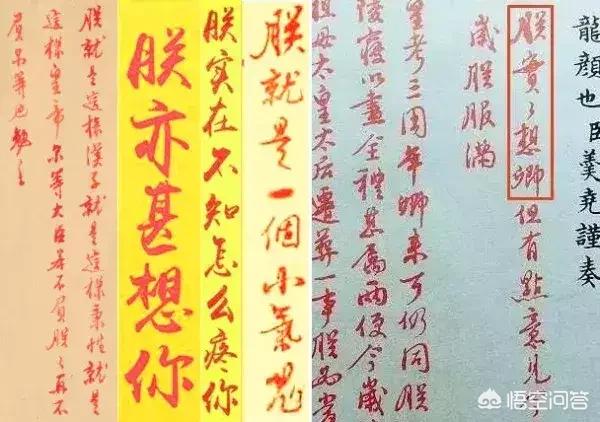 龍顏也臣羹堯謹奏
朕實々想卿但有點意見
歲朕服滿
皇考三周年卿来可仍同朕
陵寢以盡全禮甚屬兩便今歲
祖母太皇太后遷葬一事朕
朕就是一個小氣鬼
朕实在不知怎么疼你
朕亦甚想你
朕就是這樣漢子就是這樣秉性就是
這樣皇帝尔等大臣若不負朕々再不
負尔等也勉之
悟空问答